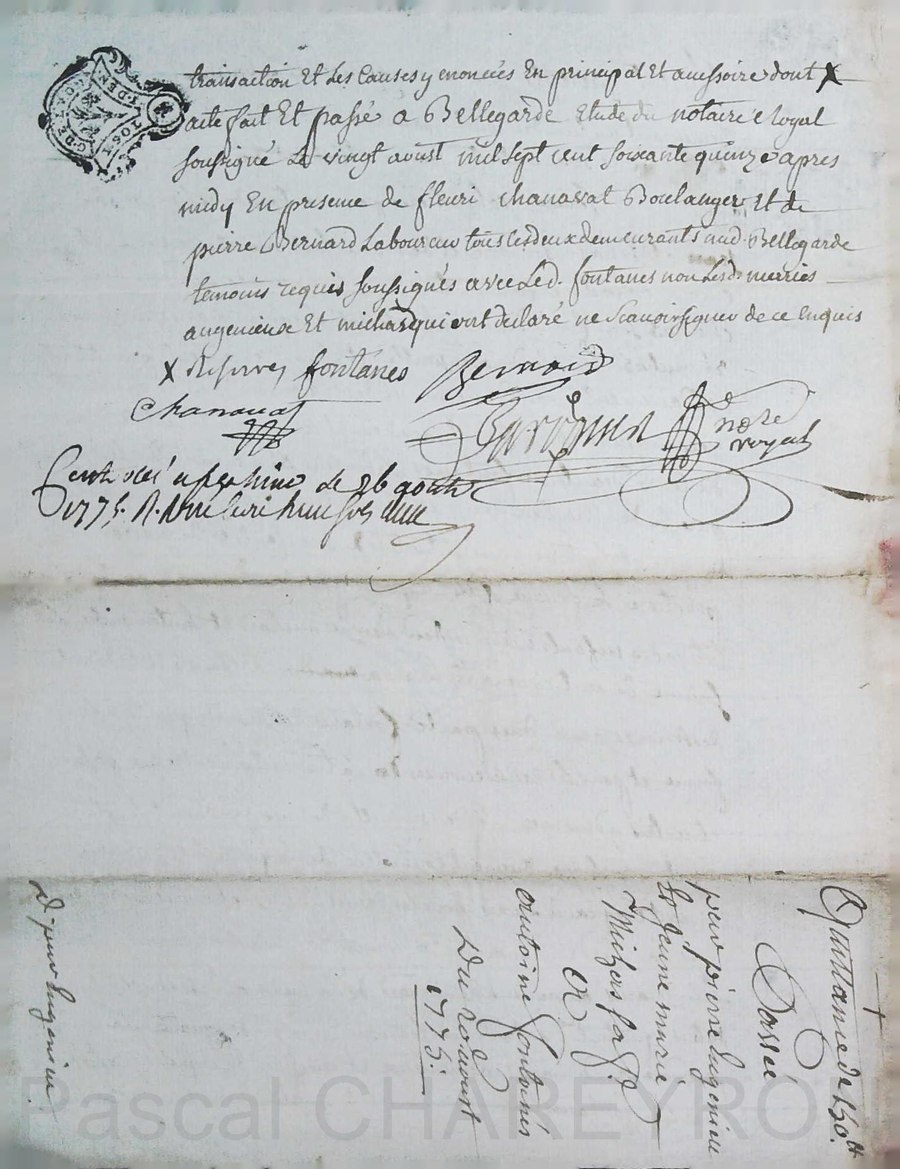 transaction Et Les Causes y enoncées En principal Et accessoire dont X
acte fait Et passé a Bellegarde Etude du notaire Royal
soussigné Le vingt aoust mil sept cent soixante quinze apres
midy En presence de fleuri chanavat Boulanger Et de
pierre Bernard Laboureur tous les deux demeurants aud. Bellegarde
temoins requis soussignés avec Led. fontanes non Lesd. merries
augenieux Et michard qui ont declaré ne scavoir signer de ce enquis
X reserves fontanes Bernard
Chanavat
nore
royal
de 26 aoust
1775. R.
Quittance de 150.tt
Passée
par pierre augenieux
Le Jeune marie
sa f.
a
antoine fontanes
Du 20 aoust
1775.
Dr. pour Eugenieu
Pascal CHAREYRON